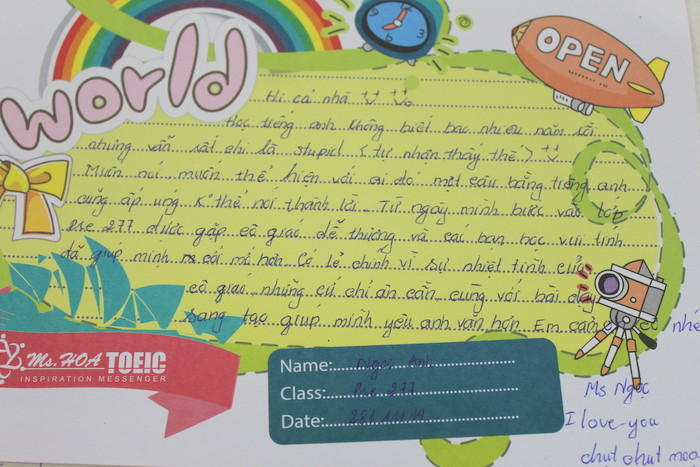 world
OPEN
Hi cả nhà
Học tiếng anh không biết bao nhiêu năm rồi
nhưng vẫn rất chi là stupid (tự nhận thấy thế)
Muốn nói muốn thể hiện với ai đó một câu bằng tiếng anh
cũng ấp úng k thể nói thành lời. Từ ngày mình bước vào lớp
Pre 277 được gặp cô giáo dễ thương và các bạn học vui tính
đã giúp mình cởi mở hơn. Có lẽ chính vì sự nhiệt tình của
cô giáo những cử chỉ ân cần cùng với bài dạy
sáng tạo giúp mình yêu anh văn hơn. Em cảm nhé
Ms Ngọc
I love you
chụt chụt moa
Ms. HOA TOEIC
INSPIRATION MESSENGER
Name: Ngọc Anh
Class: Pre 277
Date: